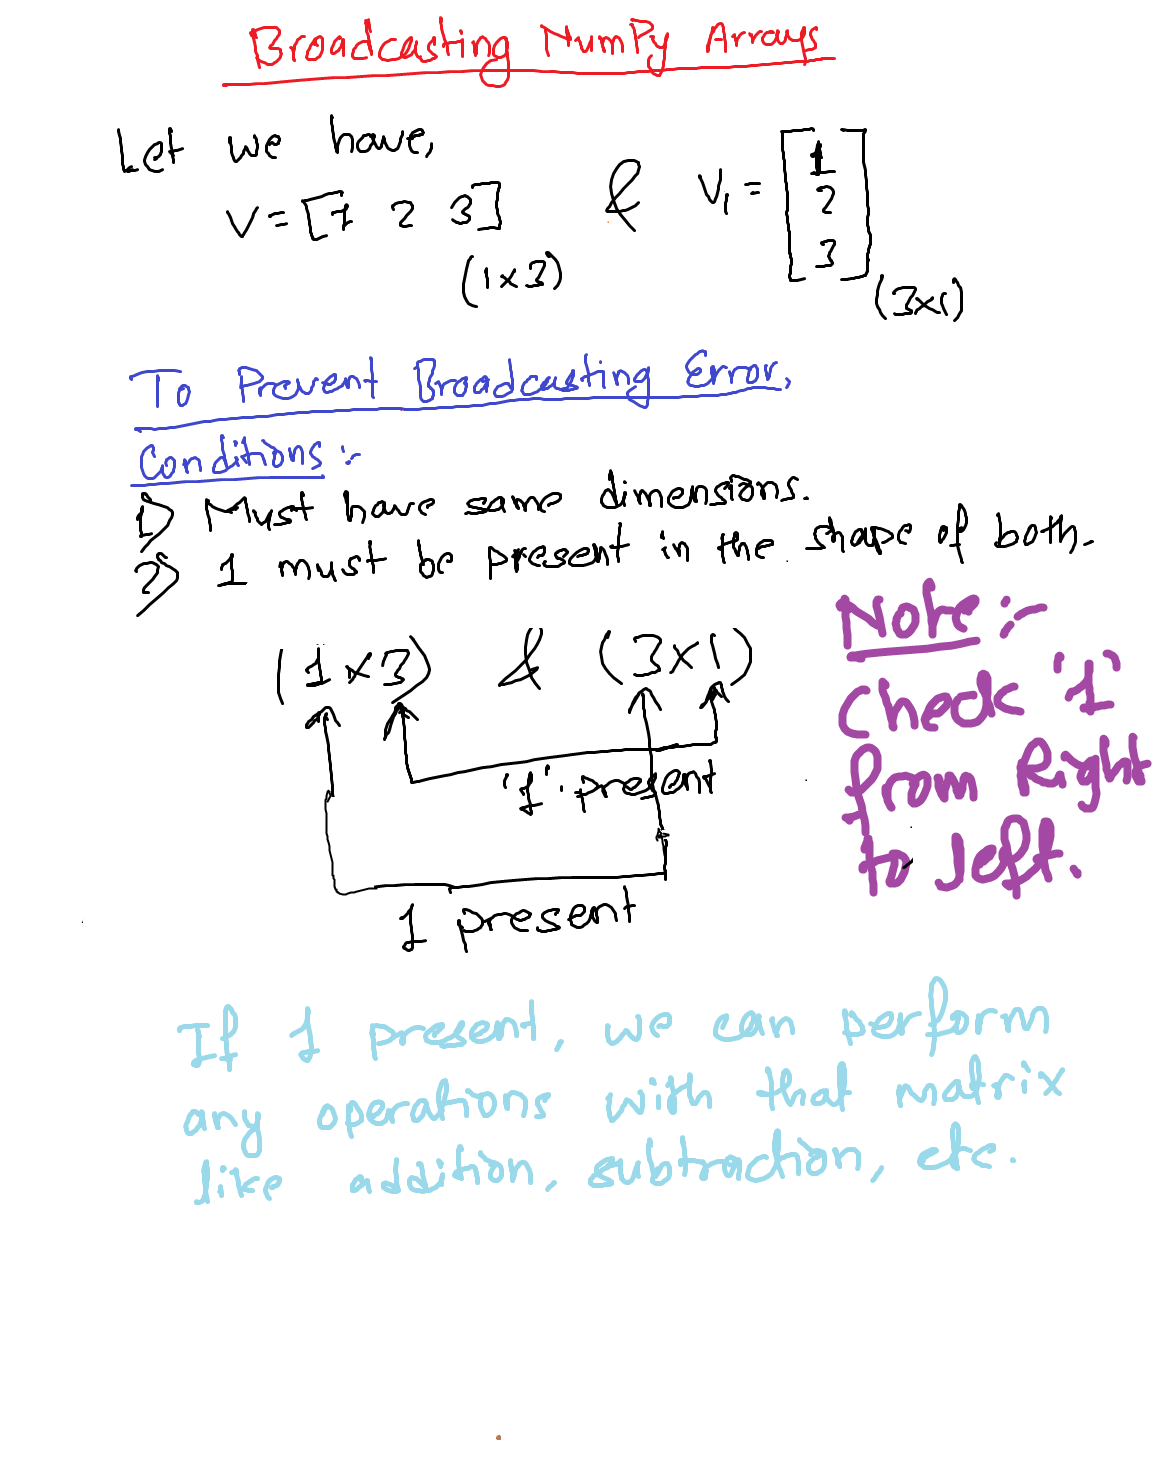 Broadcasting NumPy Arrays
Let we have,
V = [1 2 3] & V₁ = [1 2 3]
(1×3) (3×1)
To Prevent Broadcasting Error,
Conditions :-
1) Must have same dimensions.
2) 1 must be present in the shape of both.
Note :-
(1×3) & (3×1)
Check '1'
from Right
to left.
'1' present
1 present
If 1 present, we can perform
any operations with that matrix
like addition, subtraction, etc.